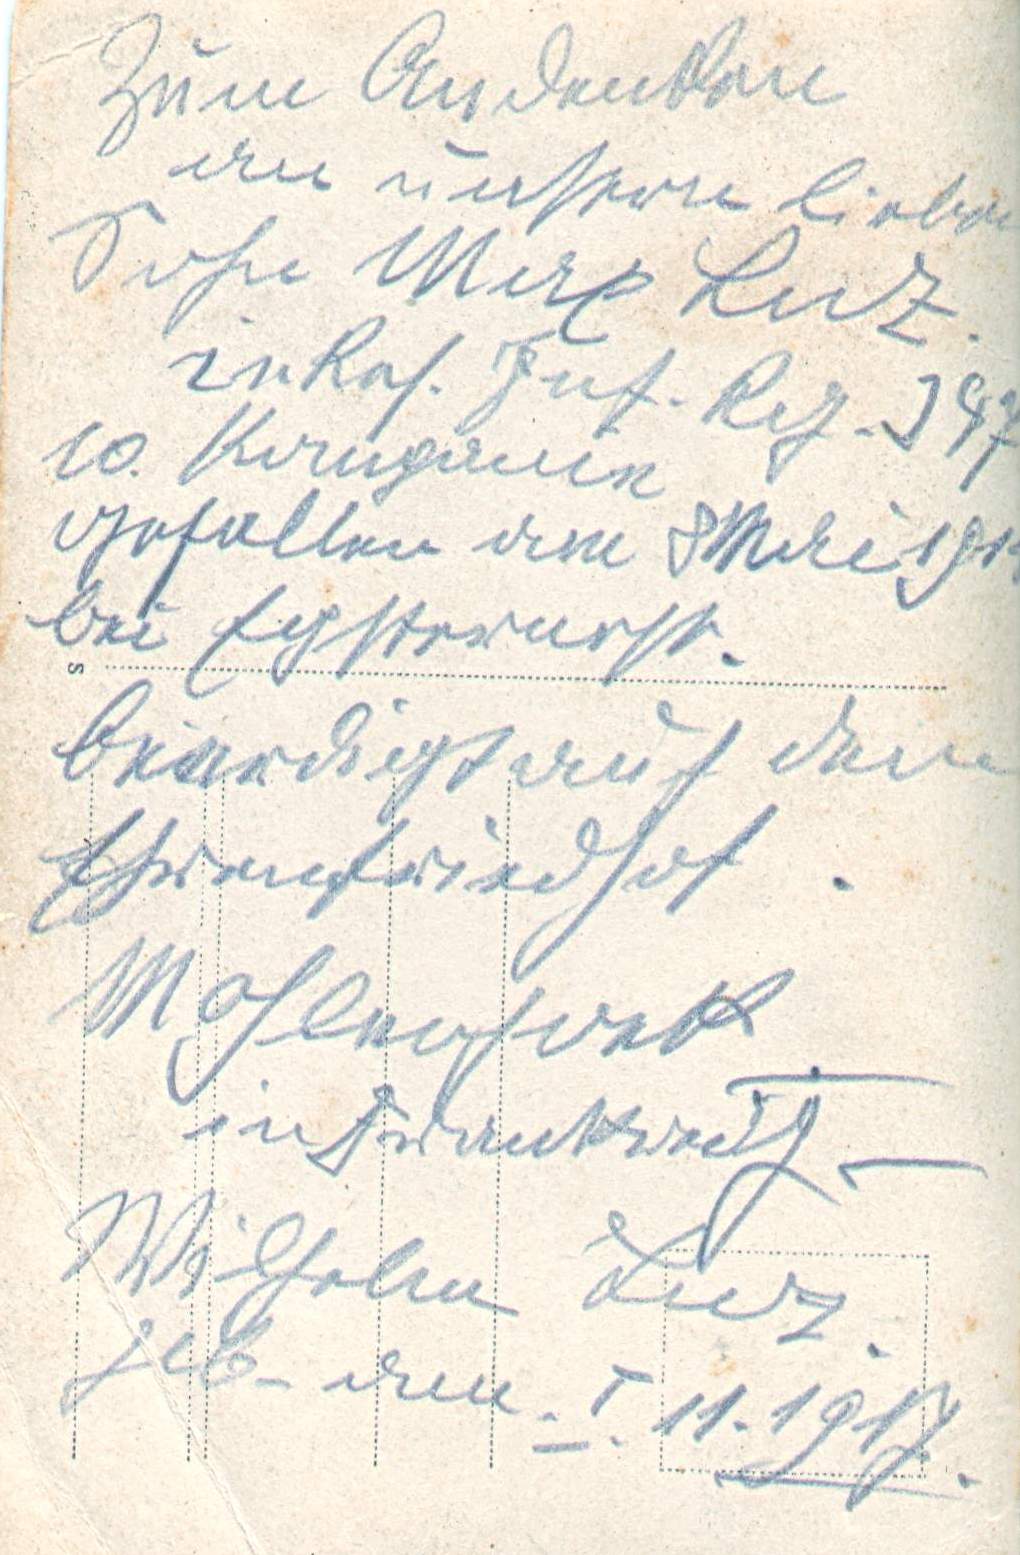 Zum Andenken
an unseren lieben
Sohn Max Lutz.
in Res. Inf. Reg. 247
10. Kompanie
gefallen am 8 Mai 191
bei
s
beerdigt auf dem
Ehrenfriedhof.
in Frankreich
Wilhelm Lutz.
geb. am. I. 11. 1917.